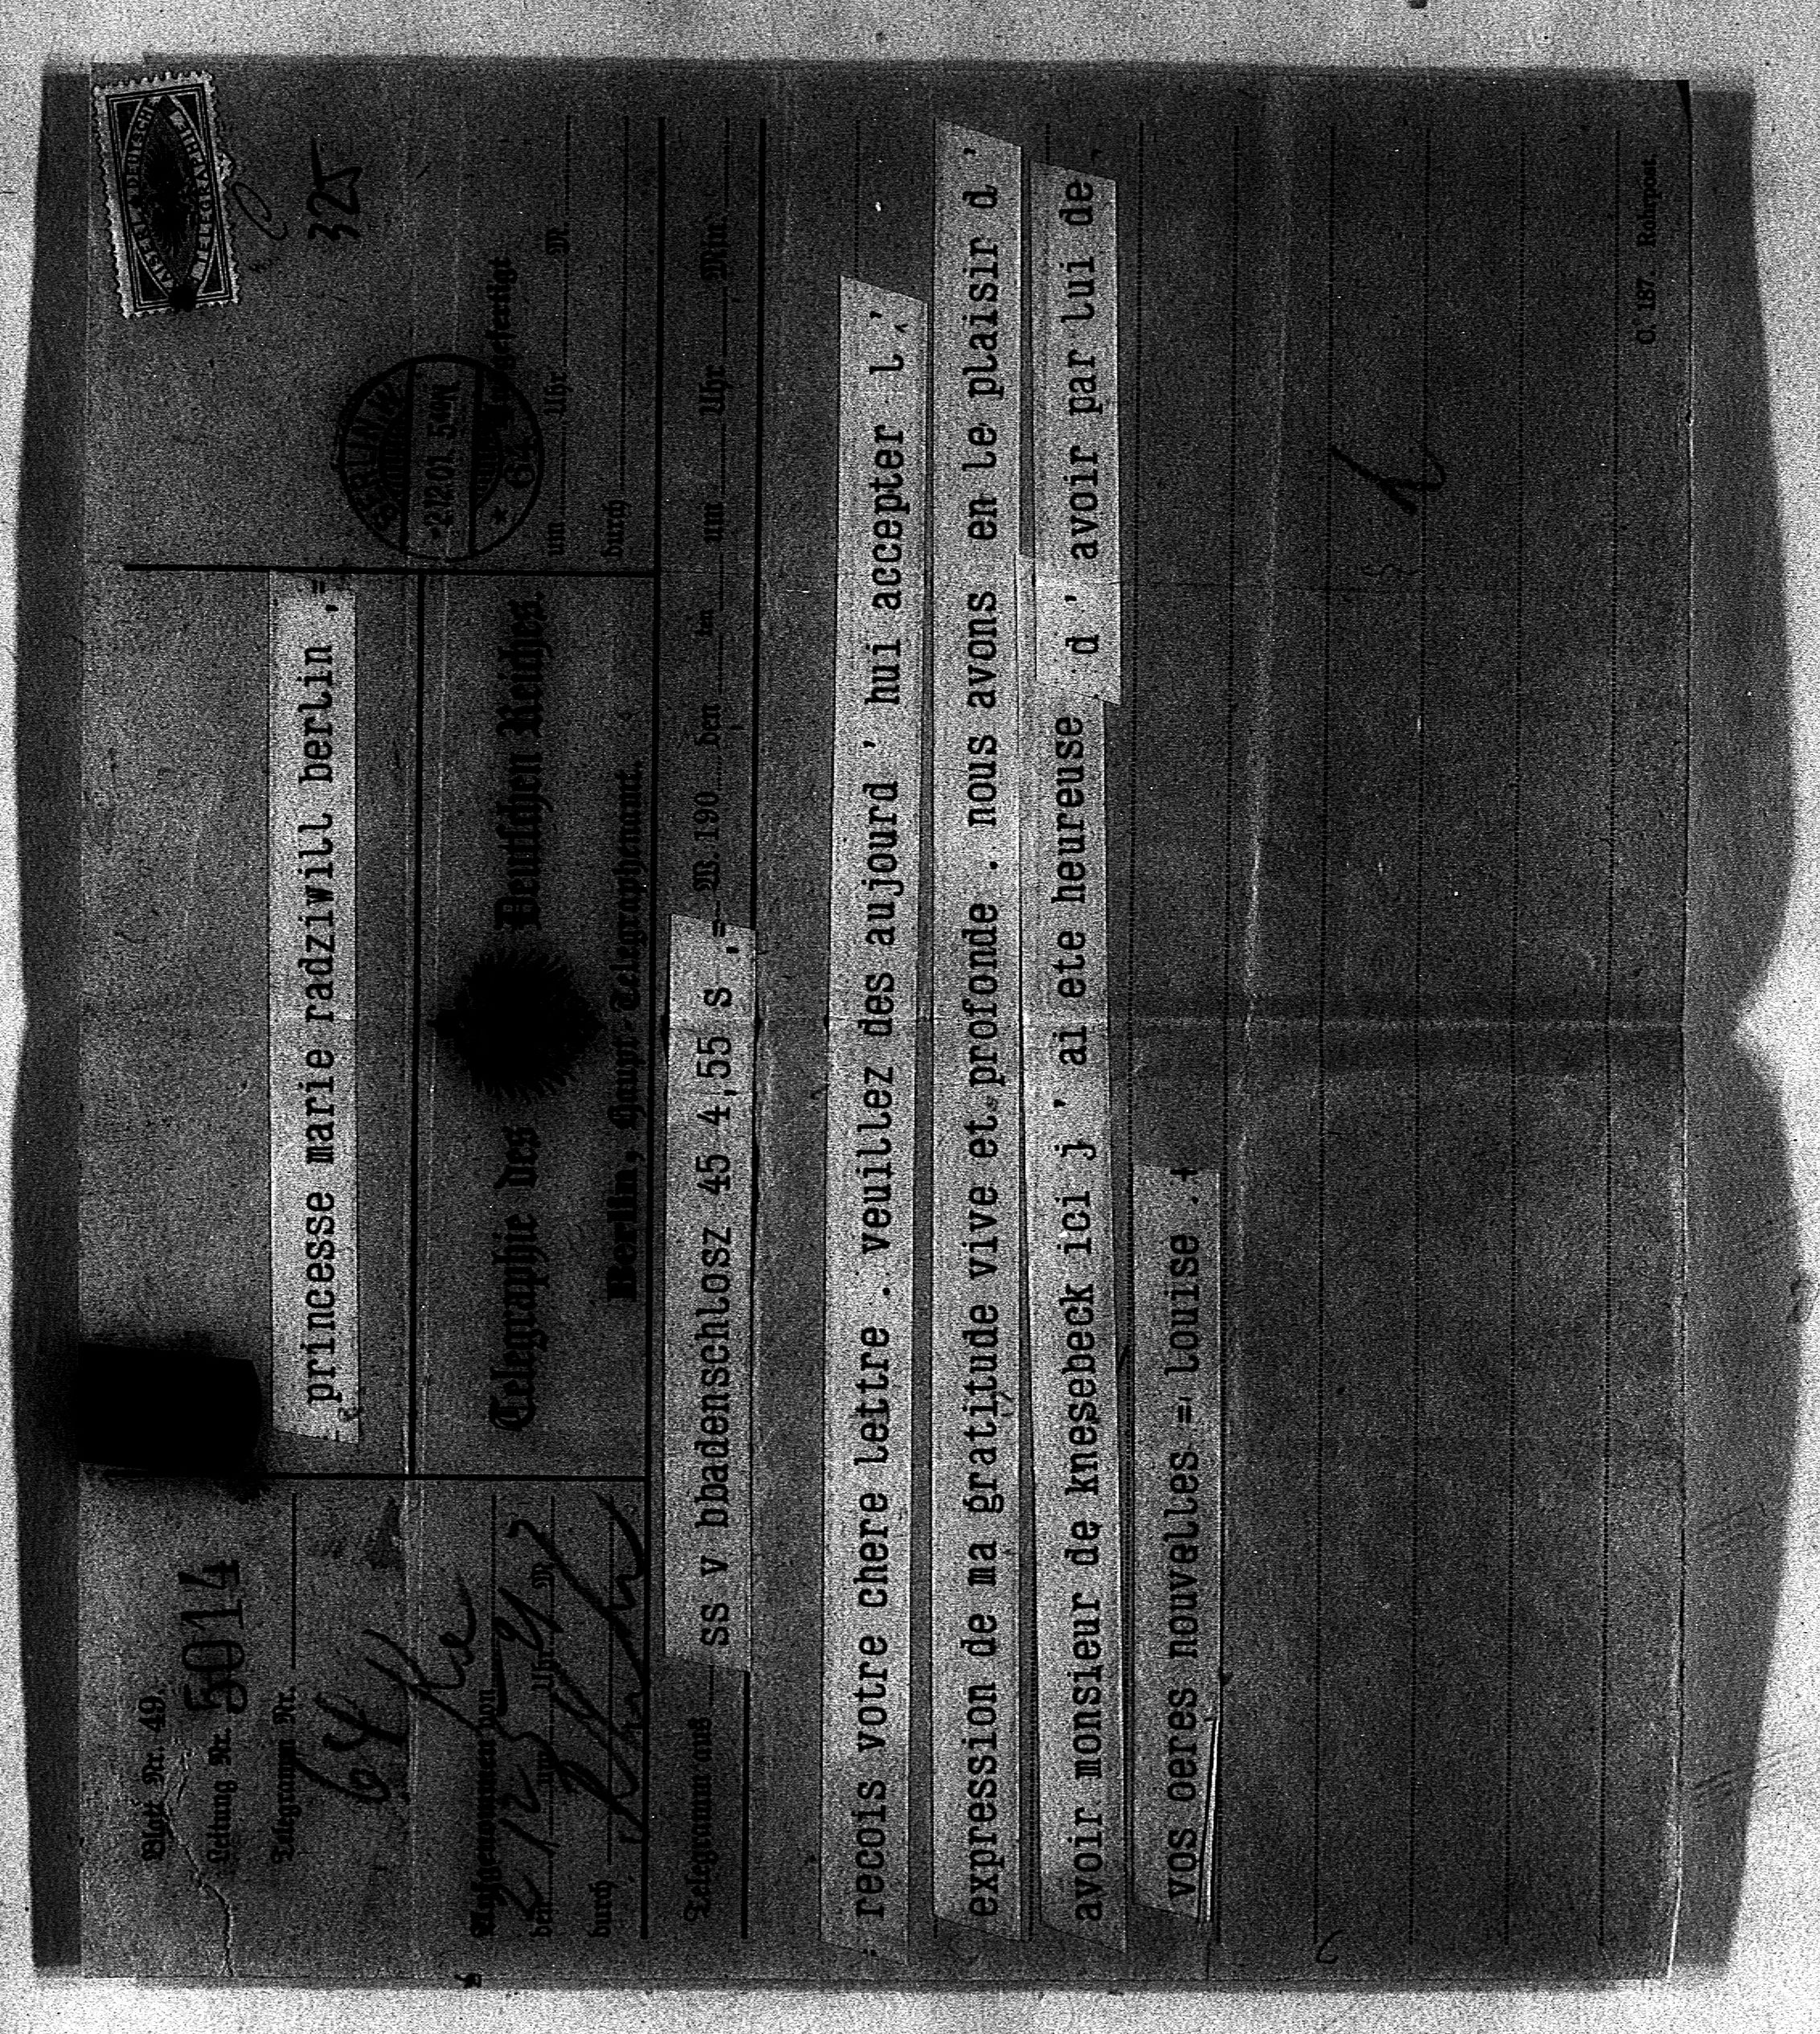 Blatt Nr. 49.
Leitung Nr. 5014
Telegramm Nr.
64
princesse marie radziwill berlin ,=
KAISERL. DEUTSCHE
TELEGRAPHIE
325
Aufgenommen von
den 2/12 um Uhr M.
durch
Telegraphie des Deutschen Reiches.
Berlin, Haupt-Telegraphenamt.
BERLIN
*2/12 01. 5
* 64
Ausgefertigt
um Uhr M.
durch
Telegramm aus ss v bbadenschlosz 45 4,55 s ,= W. 190 den ten um Uhr Min.
recois votre chere lettre . veuillez des aujourd ' hui accepter l '
expression de ma gratitude vive et profonde . nous avons en le plaisir d '
avoir monsieur de knesebeck ici j ' ai ete heureuse d ' avoir par lui de
vos oeres nouvelles = louise . +
C. 187. Rohrpost